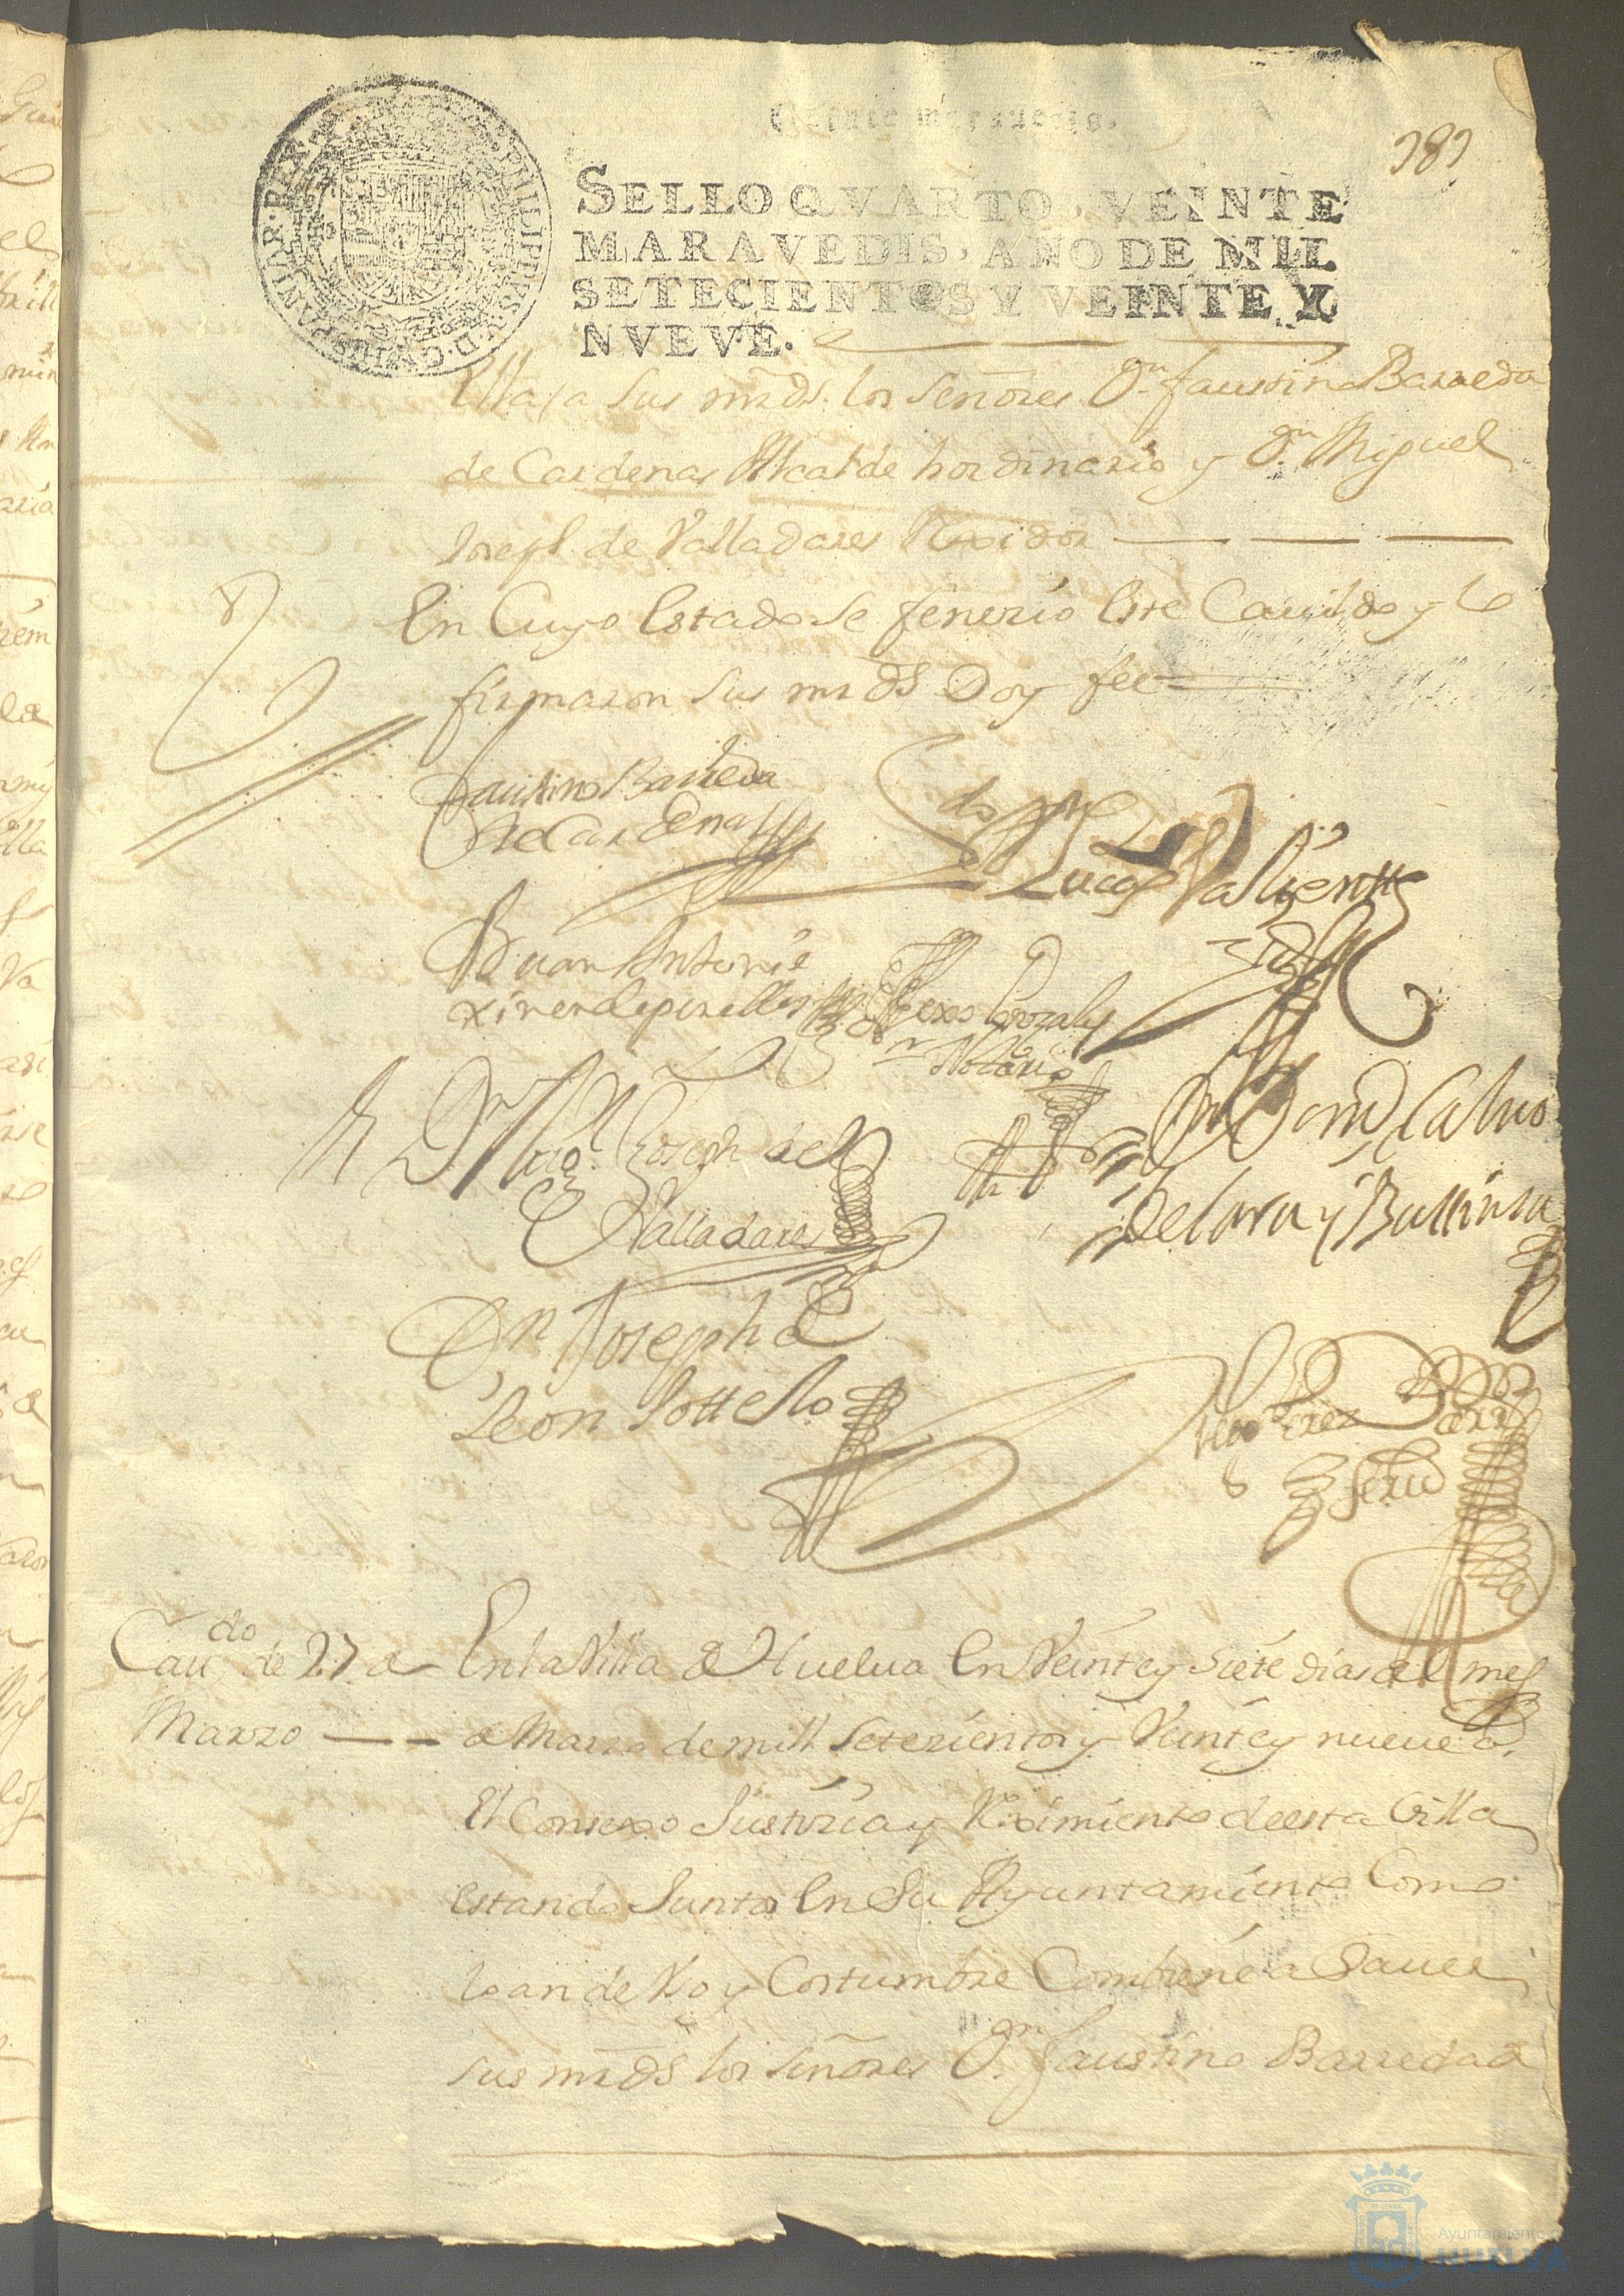 Veinte maravedis.
382
PHILIPPUS. V. D. G. HISPANIAR. REX.
SELLO QVARTO, VEINTE
MARAVEDIS, AÑO DE MIL
SETECIENTOS Y VEINTE Y
NVEVE.
sus mrds. los señores Dn. faustino Barreda
de Cardenas Alcalde hordinario y Dn. Miguel
Joseph de Valladares Rexidor
En Cuyo Estado se fenecio Este Cauildo y lo
firmaron sus mrds Doy fee
Faustino Barreda
de Cardenas
Lucas Valiente
Juan Antonio
Gonzales
Notario
Joseph de
Valladares
Dn Domo Calbo
De lara y
Dn Joseph de
Leon Sottello
Perez
Caudo de 27 de
Marzo
En la Villa de Huelua En Veinte y Siete dias del mes
de Marzo de mill Setecientos y Veinte y nueue as.
El Consexo Justicia y Reximiento de esta Villa
estando Junto En Su Ayuntamiento Como
lo an de Vso y Costumbre Combiene a Sauer
sus mrds los señores Dn. faustino Barreda de
Ayuntamiento
HUELVA